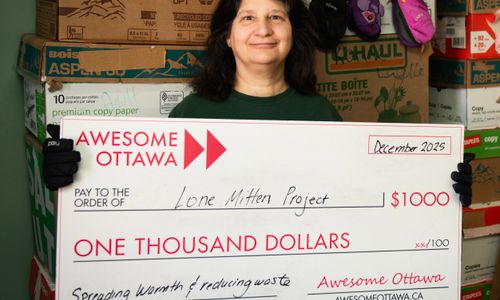 BOISE
ASPEN
10
premium copy paper
U-HAUL
STAPLES
AWESOME
OTTAWA
December 2025
PAY TO THE
ORDER OF
Lone Mitten Project
$1000
ONE THOUSAND DOLLARS
xx/100
Spreading Warmth & reducing waste
Awesome Ottawa
AWESOMEOTTAWA.CA